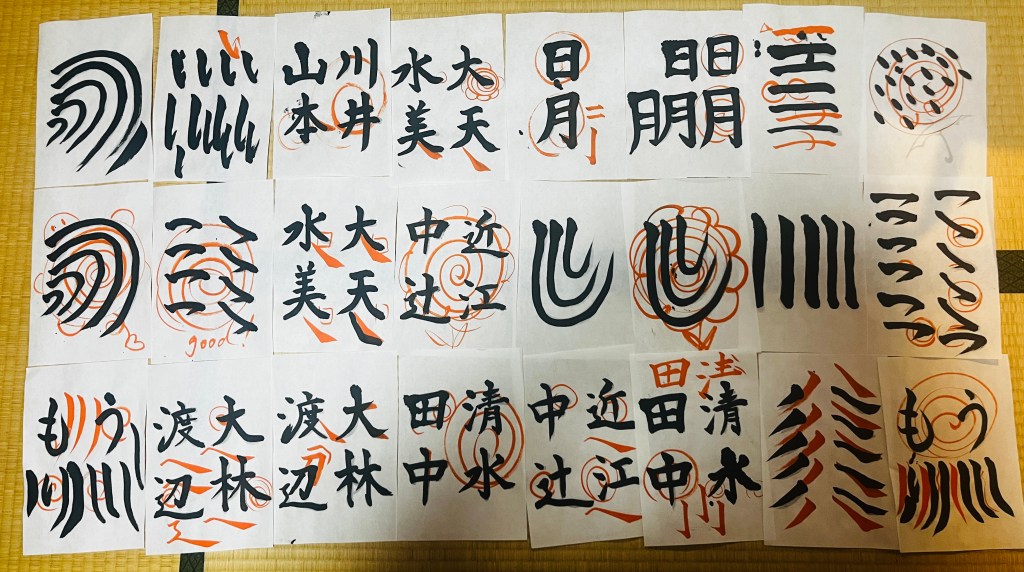 川井
山本
大天
水美
日月
日月
日月
月
good!
大天
水美
近江
中辻
もう
大林
渡辺
大林
渡辺
清水
田中
近江
中辻
清水
田中
田
もう